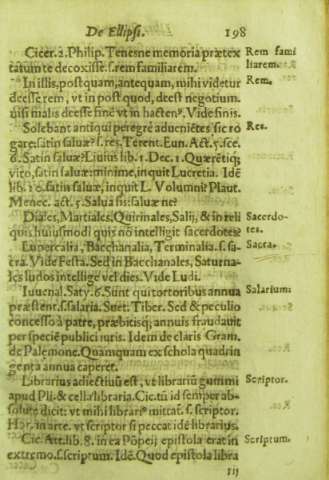 De Ellipsi. 198
Cicer. 2. Philip. Tenesne memoria prætex Rem fami
tatum te decoxisse? s. rem familiarem. liarem.
In illis, postquam, antequam, mihi videtur Rem.
deesse rem, vt in post quod, deest negotium.
nisi malis deesse finē vt in hactenꝰ. Vide finis.
Solebant antiqui peregrè adueniētes sic ro Res.
gare, satin saluæ? s. res, Terent. Eun. Act. 5. sce.
6. Satin saluæ? Liuius lib. 1. Dec. 1. Quærētiq;
viro, satin saluæ: minime, inquit Lucretia. Idē
lib. 10. satin saluæ, inquit L. Volumni? Plaut.
Menec. act. 5. Salua sis: saluæ ne?
Diales, Martiales, Quirinales, Salij, & in reli Sacerdo-
quis huiusmodi quis nō intelligit sacerdotes? tes.
Lupercalia, Bacchanalia, Terminalia. s. sa- Sacra.
cra. Vide Festa. Sed in Bacchanales, Saturna-
les ludos intellige vel dies. Vide Ludi.
Iuuenal. Saty. 6. Sunt qui tortoribus annua Salarium.
præstent. s. salaria. Suet. Tiber. Sed & peculio
concesso à patre, præbitisq; annuis fraudauit
per speciē publici iuris. Idem de claris Gram.
de Palemone. Quamquam ex schola quadrin
genta annua caperet.
Librarius adiectiuū est, vt librariū gummi Scriptor.
apud Pli. & cella libraria. Cic. tū id semper ab-
solute dicit: vt mihi librariꝰ mittat. s. scriptor.
Hor. in arte. vt scriptor si peccat idē librarius.
Cic. Att. lib. 8. in ea Pōpeij epistola erat in Scriptum.
extremo. s. scriptum. Idē. Quod epistola libra